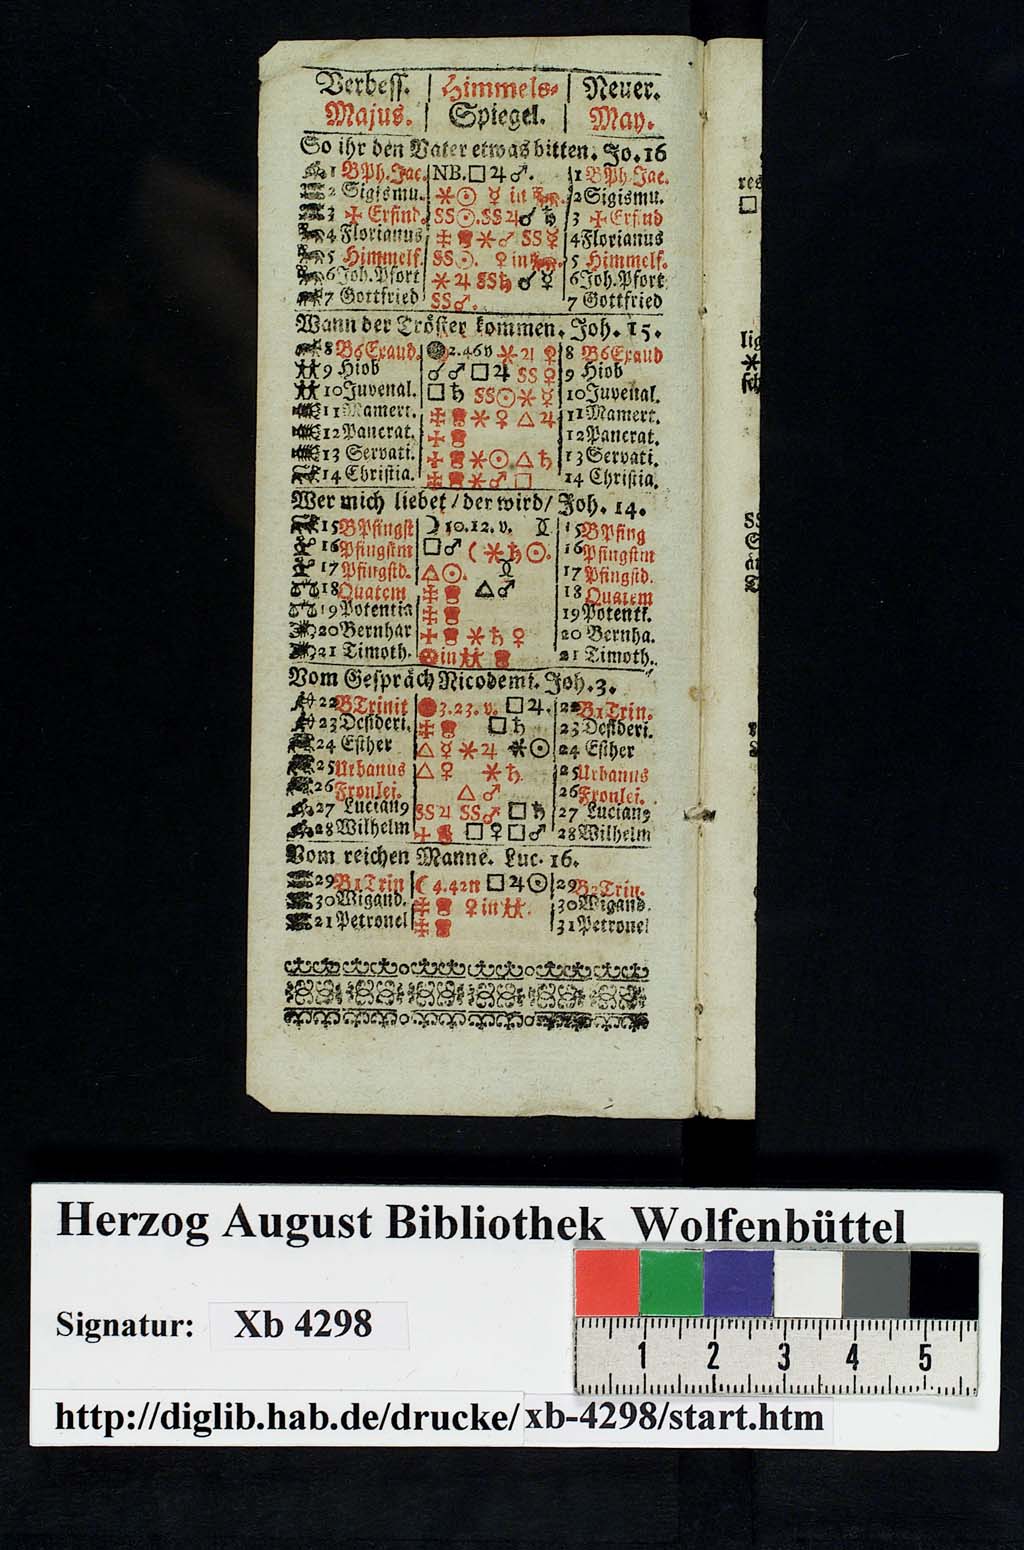 Verbess. | Himmels- | Neuer.
Majus. | Spiegel. | May.
So ihr den Vater etwas bitten. Jo. 16
1 B Ph. Jac. | NB. □ ♃ ♂. | 1 B Ph. Jac.
2 Sigismu. | ⚹ ☉ ☿ in | 2 Sigismu.
3 ✠ Erfind. | SS ☉. SS ♃ ☌ ♄ | 3 ✠ Erfind
4 Florianus | ⚹ ♂ SS ☿ | 4 Florianus
5 Himmelf. | SS ☉. ♀ in | 5 Himmelf.
6 Joh. Pfort | ⚹ ♃ SS ♄ ☌ ☿ | 6 Joh. Pfort
7 Gottfried | SS ♂. | 7 Gottfried
Wann der Tröster kommen. Joh. 15.
8 B 6 Exaud. | 2. 46 v ⚹ ♃ ♀ | 8 B 6 Exaud
9 Hiob | ☌ ♂ □ ♃ SS ♀ | 9 Hiob
10 Juvenal. | □ ♄ SS ☉ ⚹ ☿ | 10 Juvenal.
11 Mamert. | ⚹ ♀ △ ♃ | 11 Mamert.
12 Pancrat. | ✠ | 12 Pancrat.
13 Servati. | ⚹ ☉ △ ♄ | 13 Servati.
14 Christia. | ⚹ ♂ □ | 14 Christia.
Wer mich liebet / der wird / Joh. 14.
15 B Pfingst | ☽ 10. 12. v. | 15 B Pfing
16 Pfingstm | □ ♂ ( ⚹ ♄ ☉. | 16 Pfingstm
17 Pfingstd. | △ ☉. | 17 Pfingstd.
18 Quatem | △ ♂ | 18 Quatem
19 Potentia | ✠ | 19 Potenti.
20 Bernhar | ⚹ ♄ ♀ | 20 Bernha.
21 Timoth. | in | 21 Timoth.
Vom Gespräch Nicodemi. Joh. 3.
22 B Trinit | 3. 23. v. □ ♃. | 22 B 1 Trin.
23 Desideri. | □ ♄ | 23 Desideri.
24 Esther | △ ☿ ⚹ ♃ ⚹ ☉ | 24 Esther
25 Urbanus | △ ♀ ⚹ ♄ | 25 Urbanus
26 Fronlei. | △ ♂ | 26 Fronlei.
27 Lucian9 | SS ♃ SS ♂ □ ♄ | 27 Lucian9
28 Wilhelm | □ ♀ □ ♂ | 28 Wilhelm
Vom reichen Manne. Luc. 16.
29 B 1 Trin | ☾ 4. 42 n □ ♃ ☉ | 29 B 2 Trin.
30 Wigand. | ♀ in | 30 Wigand.
21 Petronel | ✠ | 31 Petronel
Herzog August Bibliothek Wolfenbüttel
Signatur: Xb 4298
1 2 3 4 5
http://diglib.hab.de/drucke/xb-4298/start.htm